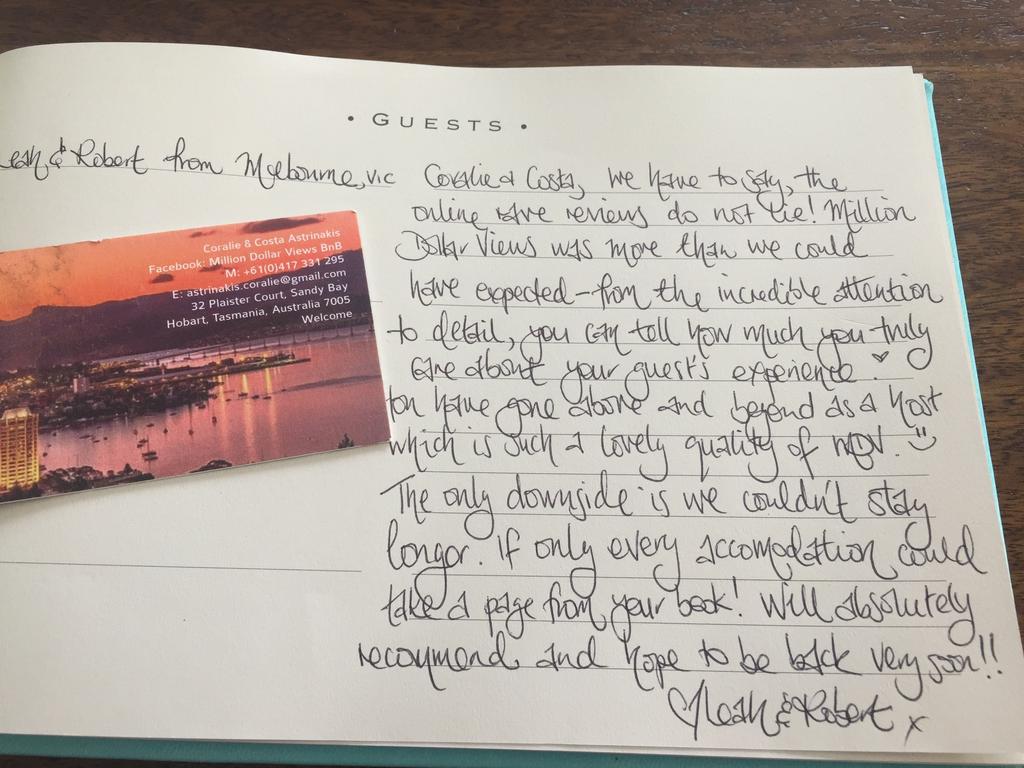 • GUESTS •
Leah & Robert from Melbourne, VIC
Coralie & Costa, we have to say, the
online rave reviews do not lie! Million
Dollar Views was more than we could
have expected - from the incredible attention
to detail, you can tell how much you truly
care about your guest's experience. ♡
You have gone above and beyond as a host
which is such a lovely quality of
The only downside is we couldn't stay
longer. if only every accomodation could
take a page from your book! Will absolutely
recommend and hope to be back very soon!!
Leah & Robert x
Coralie & Costa Astrinakis
Facebook: Million Dollar Views BnB
M: +61(0)417 331 295
E: astrinakis.coralie@gmail.com
32 Plaister Court, Sandy Bay
Hobart, Tasmania, Australia 7005
Welcome